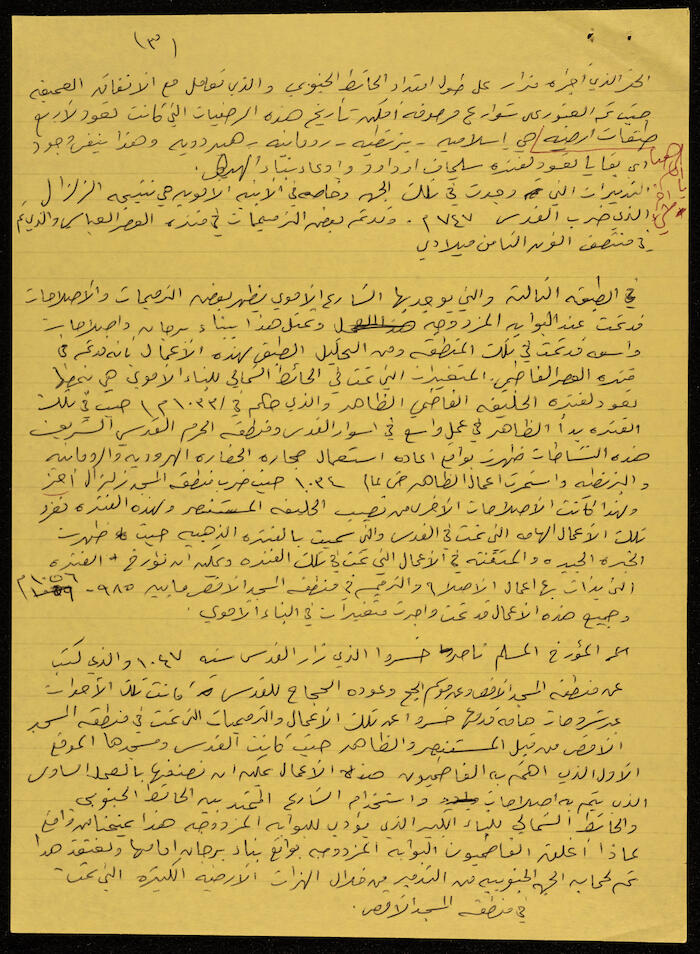 (٣)
الحفر الذي أجراه مزار على طول امتداد الحائط الجنوبي والذي تعامل مع الانفاق العميقه
حيث تم العثور على شوارع مرصوفه أمكن تأريخ هذه الرضيات التي كانت تعود لأربع
طبقات ارضيه / هي إسلاميه - بيزنطيه - رومانيه - هيروديه وهذا ينفي وجود
اي بقايا تعود لفتره سليمان او داوود وادعاء بناء الهيكل.
التدميرات التي وجدت في تلك الجهه وخاصه في الأبنيه الأمويه هي نتيجه الزلزال
الذي ضرب القدس ٧٤٧م. وقد تم بعض الترميمات في فتره العصر العباسي والذي تم
في منتصف القرن الثامن ميلادي
في الطبقه الثالثه والتي يوجد بها الشارع الأموي يظهر بعض الترميمات والأصلاحات
قد تمت عند البوابه المزدوجه وتمثل هذا ببناء برجان واصلاحات
واسعه قد تمت في تلك المنطقه ومن التحليل الطبقي لهذه الأعمال بأنه قد تم في
فتره العصر الفاطمي. المتغيرات التي تمت في الحائط الشمالي للبناء الأموي هي
تعود لفتره الخليفه الفاطمي الظاهر والذي حكم في (١٠٣٣م) حيث في تلك
الفتره بدأ الظاهر في عمل واسع في اسوار القدس ومنطقه الحرم القدسي الشريف
هذه النشاطات ظهرت بواقع اعاده استعمال حجاره الحضاره الهروديه والرومانيه
والبيزنطيه واستمرت اعمال الظاهر حتى عام ١٠٣٤ حيث ضرب منطقه المسجد زلزال آخر
ولهذا كانت الأصلاحات الأخرى من نصيب الخليفه المستنصر وبهذه الفتره نفرد
تلك الأعمال الهامه التي تمت في القدس والتي سميت بالفتره الذهبيه حيث ظهرت
الخبره الجيده والمتقنه في الأعمال التي تمت في تلك الفتره ويمكن ان نؤرخ الفتره
التي بدأت بها اعمال الأصلاح والترميم في منطقه المسجد الأقصى ما بين ٩٨٥ - ١٠٥٦م
وجميع هذه الأعمال قد تمت واجرت متغيرات في البناء الأموي.
المؤرخ المسلم ناصر خسروا الذي زار القدس سنه ١٠٤٧ والذي كتب
عن منطقه المسجد الأقصى وعن موسم الحج وعوده الحجاج للقدس كانت تلك الأدوات
عبر شروحات هامه قدمها خسروا عن تلك الأعمال والترميمات التي تمت في منطقه المسجد
الأقصى من قبل المستنصر والظاهر حيث كانت القدس ومسجدها الموقع
الأول الذي اهتم به الفاطميون هذه الأعمال يمكن ان نصنفها بالعمل السادس
الذي يتم به اصلاحات واستخدام الشارع الممتد بين الحائط الجنوبي
والحائط الشمالي للبناء الكبير الذي يؤدي للبوابه المزدوجه هذا
لماذا أغلق الفاطميون البوابه المزدوجه بواقع بناء برجان امامها ونعتقد هذا
تم لحمايه الجهه الجنوبيه من التدمير من خلال الهزات الأرضيه الكثيره التي تمت
في منطقه المسجد الأقصى.